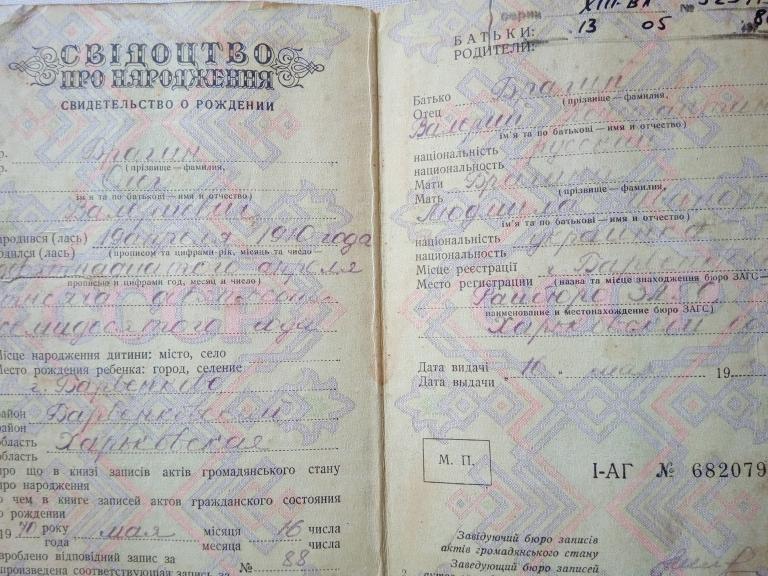 СВІДОЦТВО
ПРО НАРОДЖЕННЯ
СВИДЕТЕЛЬСТВО О РОЖДЕНИИ
Гр.
Гр. Брагин
(прізвище — фамилия,
Олег
ім'я та по батькові — имя и отчество)
Валериевич
народився (лась) 19 апреля 1970 года
родился (лась) (прописом та цифрами рік, місяць та число —
девятнадцатого апреля
прописью и цифрами год, месяц и число)
тысяча девятьсот
семидесятого года
Місце народження дитини: місто, село
Место рождения ребенка: город, селение
г. Барвенково
район Барвенковский
район
область Харьковская
область
про що в книзі записів актів громадянського стану
про народження
о чем в книге записей актов гражданского состояния
о рождении
19 70 року мая місяця 16 числа
года месяца числа
зроблено відповідний запис за № 88
произведена соответствующая запись за
серии XIII-ВЛ №
13 05
БАТЬКИ:
РОДИТЕЛИ:
Батько Брагин
Отец (прізвище — фамилия,
Валерий
ім'я та по батькові — имя и отчество)
національність русский
национальность
Мати Брагина
Мать (прізвище — фамилия,
Людмила Ивановна
ім'я та по батькові — имя и отчество)
національність украинка
национальность
Місце реєстрації г. Барвенково
Место регистрации (назва та місце знаходження бюро ЗАГС —
Райбюро ЗАГС
наименование и местонахождение бюро ЗАГС)
Харьковской
Дата видачі
Дата выдачи „ 16 „ мая 19
М. П.
I-АГ № 682079
Завідуючий бюро записів
актів громадянського стану
Заведующий бюро записей
2